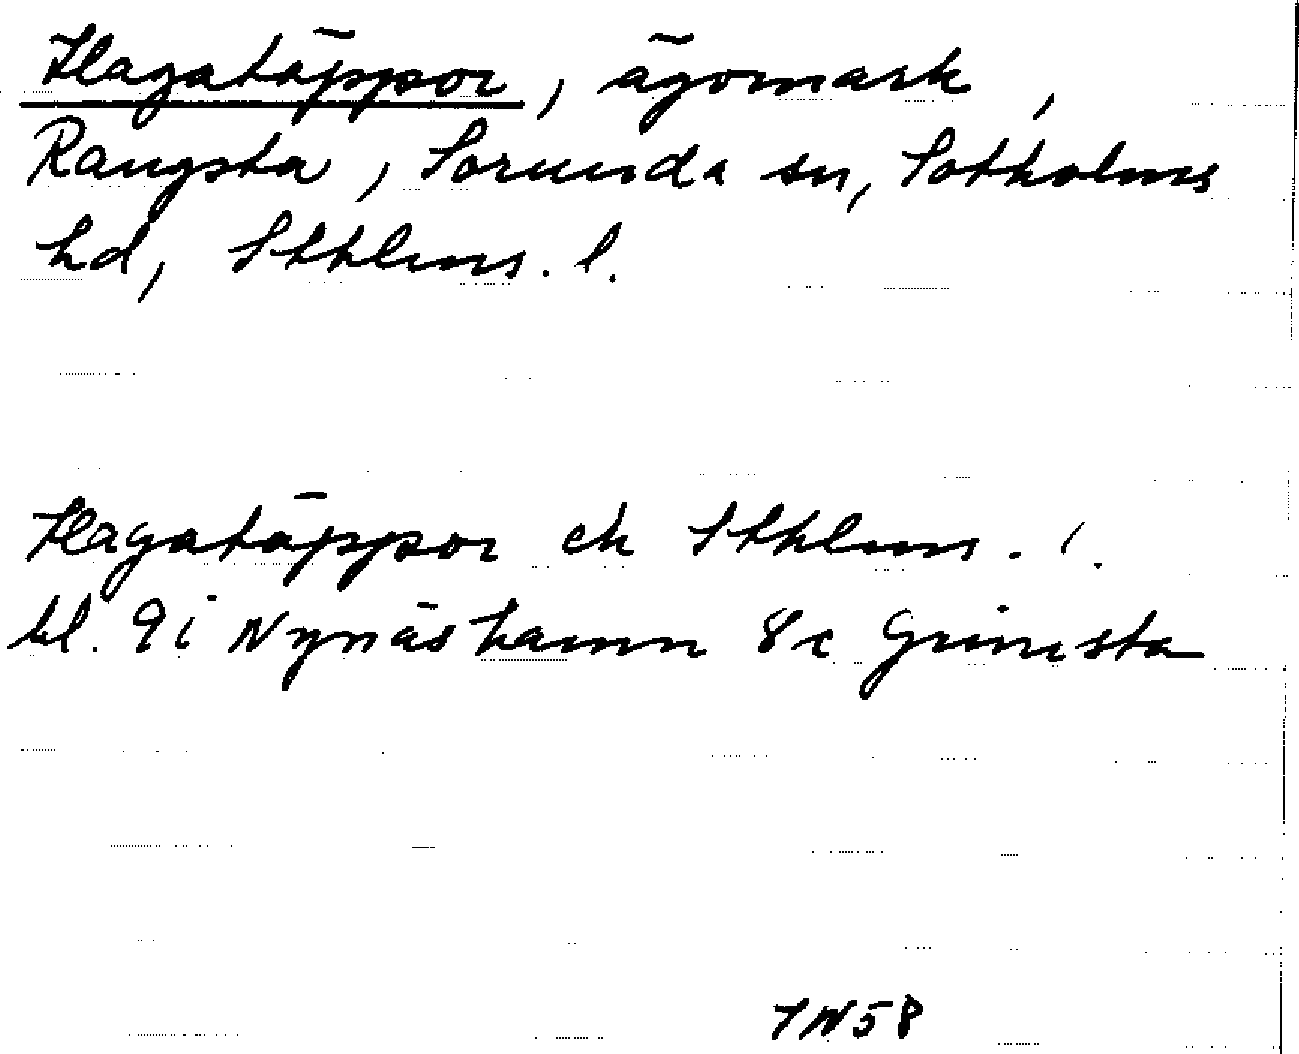 Hagatäppor, ägomark,
Rangsta, Sorunda sn, Sotholms
hd, Sthlms. l.
Hagatäppor ek Sthlms. l.
bl. 9i Nynäshamn 8c Grimsta
TN58